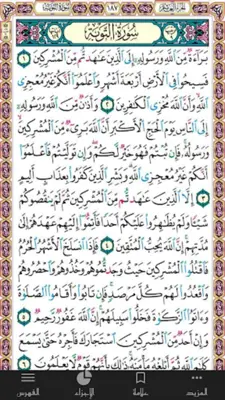 ١٨٧
سُورَةُ التَّوْبَةِ
بَرَآءَةٌ مِّنَ ٱللَّهِ وَرَسُولِهِۦٓ إِلَى ٱلَّذِينَ عَٰهَدتُّم مِّنَ ٱلْمُشْرِكِينَ ١
فَسِيحُوا۟ فِى ٱلْأَرْضِ أَرْبَعَةَ أَشْهُرٍ وَٱعْلَمُوٓا۟ أَنَّكُمْ غَيْرُ مُعْجِزِى
ٱللَّهِ وَأَنَّ ٱللَّهَ مُخْزِى ٱلْكَٰفِرِينَ ٢ وَأَذَٰنٌ مِّنَ ٱللَّهِ وَرَسُولِهِۦٓ
إِلَى ٱلنَّاسِ يَوْمَ ٱلْحَجِّ ٱلْأَكْبَرِ أَنَّ ٱللَّهَ بَرِىٓءٌ مِّنَ ٱلْمُشْرِكِينَ
وَرَسُولُهُۥ فَإِن تُبْتُمْ فَهُوَ خَيْرٌ لَّكُمْ وَإِن تَوَلَّيْتُمْ فَٱعْلَمُوٓا۟
أَنَّكُمْ غَيْرُ مُعْجِزِى ٱللَّهِ وَبَشِّرِ ٱلَّذِينَ كَفَرُوا۟ بِعَذَابٍ أَلِيمٍ
٣ إِلَّا ٱلَّذِينَ عَٰهَدتُّم مِّنَ ٱلْمُشْرِكِينَ ثُمَّ لَمْ يَنقُصُوكُمْ
شَيْـًٔا وَلَمْ يُظَٰهِرُوا۟ عَلَيْكُمْ أَحَدًا فَأَتِمُّوٓا۟ إِلَيْهِمْ عَهْدَهُمْ إِلَىٰ
مُدَّتِهِمْ إِنَّ ٱللَّهَ يُحِبُّ ٱلْمُتَّقِينَ ٤ فَإِذَا ٱنسَلَخَ ٱلْأَشْهُرُ ٱلْحُرُمُ
فَٱقْتُلُوا۟ ٱلْمُشْرِكِينَ حَيْثُ وَجَدتُّمُوهُمْ وَخُذُوهُمْ وَٱحْصُرُوهُمْ
وَٱقْعُدُوا۟ لَهُمْ كُلَّ مَرْصَدٍ فَإِن تَابُوا۟ وَأَقَامُوا۟ ٱلصَّلَوٰةَ
وَءَاتَوُا۟ ٱلزَّكَوٰةَ فَخَلُّوا۟ سَبِيلَهُمْ إِنَّ ٱللَّهَ غَفُورٌ رَّحِيمٌ ٥
وَإِنْ أَحَدٌ مِّنَ ٱلْمُشْرِكِينَ ٱسْتَجَارَكَ فَأَجِرْهُ حَتَّىٰ يَسْمَعَ
كَلَٰمَ ٱللَّهِ ثُمَّ أَبْلِغْهُ مَأْمَنَهُۥ ذَٰلِكَ بِأَنَّهُمْ قَوْمٌ لَّا يَعْلَمُونَ ٦
المزيد علامة الأجزاء الفهرس